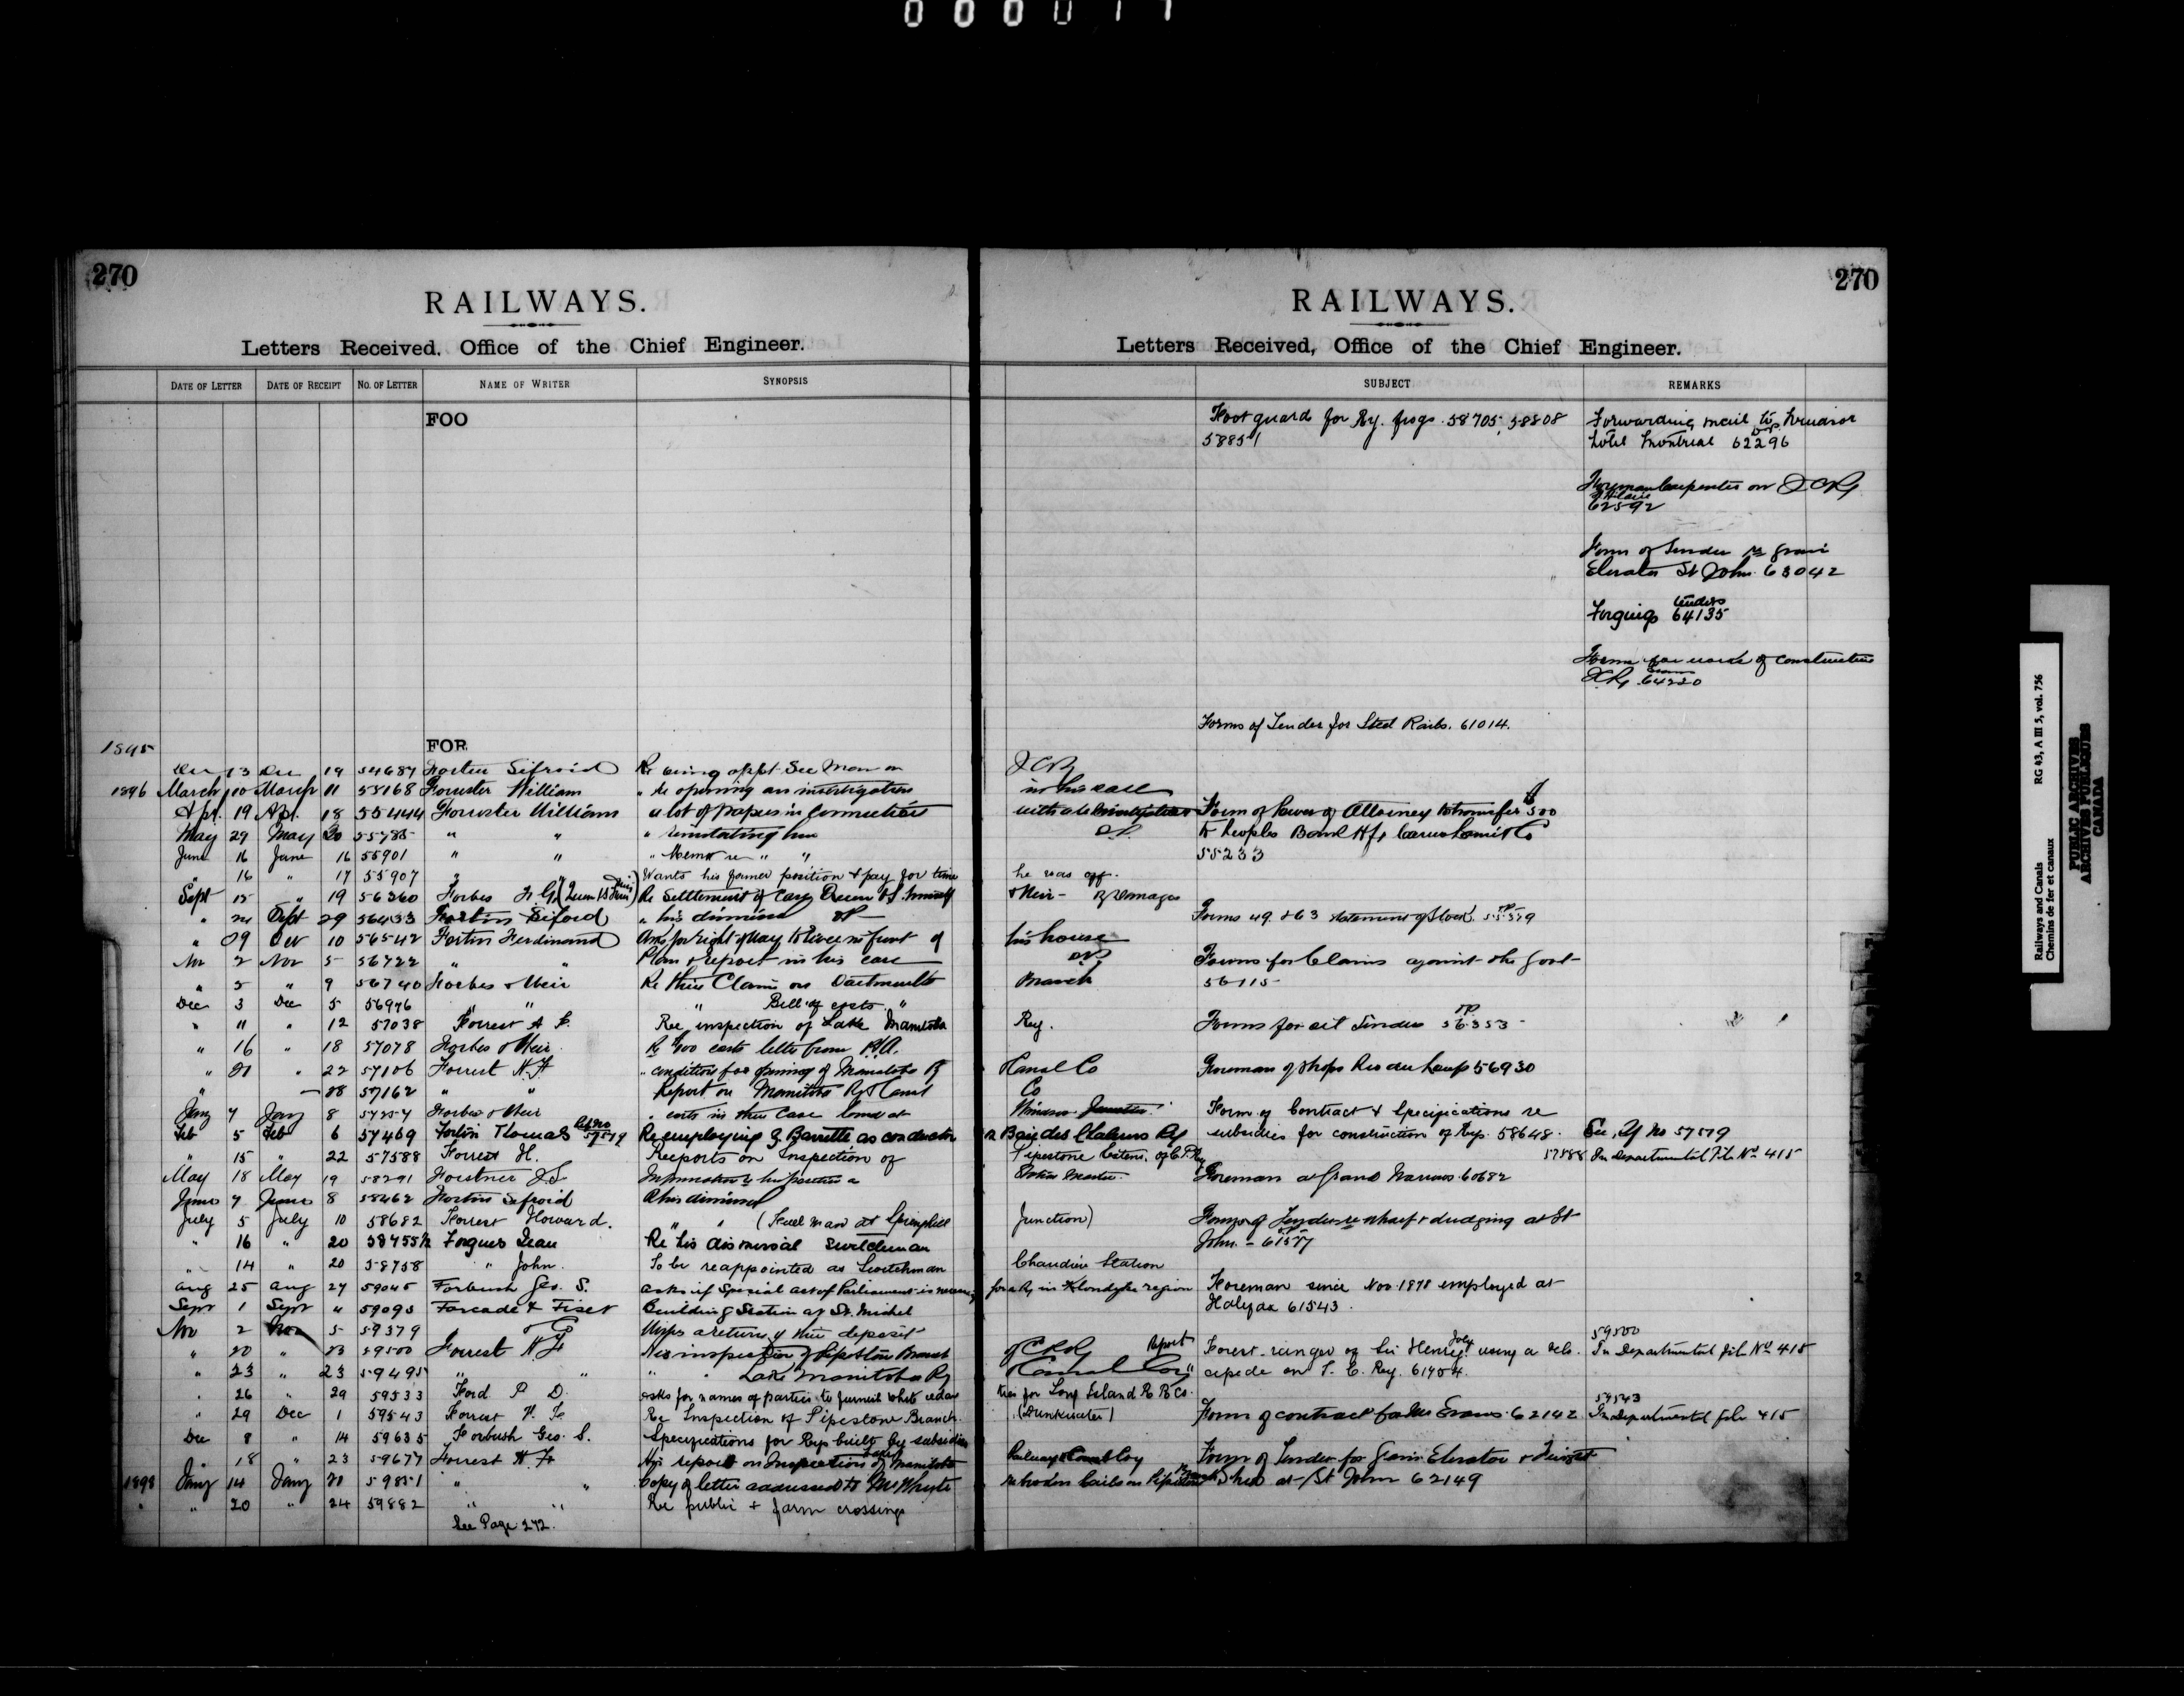 000077
270
RAILWAYS.
Letters Received, Office of the Chief Engineer.
DATE OF LETTER DATE OF RECEIPT No. OF LETTER NAME OF WRITER SYNOPSIS
FOO
FOR
1895
Dec 13 Dec 19 54687 Fortin Sifroid Re being appt. See Man on
1896 March 10 March 11 55168 Forrester William " re opening an investigation
Apl. 19 Apl. 18 55444 Forrester William a lot of papers in connection
May 29 May 30 55785 " " " reinstating him
June 16 June 16 55901 " " " Memo re " "
" 16 " 17 55907 " Wants his former position & pay for time
Sept 15 " 19 56360 Forbes F. G. Re Settlement of Case Queen
" 24 Sept 29 56433 Fortin Siford " his dismissal
" 09 Oct 10 56542 Fortin Ferdinand Asks for right of way in front of
Nov 2 Nov 5 56722 " " Plan & report in his case
" 5 " 9 56740 Forbes & Weir Re their Claim on Dartmouth
Dec 3 Dec 5 56976 " " " Bill of costs "
" 11 " 12 57038 Forrest H. F. Re inspection of Lake Manitoba
" 16 " 18 57078 Forbes & Weir Re $400 costs letter from
" 21 " 22 57106 Forrest H. F. " conditions for opening of Manitoba Ry
" — 28 57162 " " Report on Manitoba Ry & Canal
Jany 7 Jany 8 57257 Forbes & Weir " costs in their case
Feb 5 Feb 6 57469 Fortin Thomas Re employing Z. Barrette as conductor
57579
" 15 " 22 57588 Forrest H. Reports on Inspection of
May 18 May 19 58291 Forstner
June 7 June 8 58462 Fortin Sifroid Re his dismissal
July 5 July 10 58682 Forrest Howard. " " (Trackman at Springhill
" 16 " 20 58755½ Forgues Jean Re his dismissal switchman
" 14 " 20 58758 " John. To be reappointed as Switchman
Aug 25 Aug 27 59045 Forbush Geo. S. asks if Special act of Parliament is necessary
Sept 1 Sept " 59093 Forcade & Fiset Building Station at St. Michel
Nov 2 Nov 5 59379 Urges a return of their deposit
" 20 " 23 59500 Forrest H F His inspection of Pipestone Branch
" 23 " 23 59495 " " " " Lake Manitoba Ry
" 26 " 29 59533 Ford P. D. asks for names of parties to furnish white cedar
" 29 Dec 1 59543 Forrest H. F. Re Inspection of Pipestone Branch
Dec 8 " 14 59635 Forbush Geo. S. Specifications for Rys built by subsidies
" 18 " 23 59677 Forrest H. F. His report on Inspection of Manitoba
1898 Jany 14 Jany 21 59851 " " Copy of letter addressed to Mr Whyte
" " 20 " 24 59882 " " Re public & farm crossings
See Page 272.
270
RAILWAYS.
Letters Received, Office of the Chief Engineer.
SUBJECT REMARKS
Foot guard for Ry. frogs. 58705, 58808
58851
Forwarding mail to Windsor
Hotel Montreal 62296
Foreman Carpenter on ICRy
62592
Form of Tender re grain
Elevator St John 63042
Forgings tenders 64135
Forms for work of construction
64220
Forms of Tender for Steel Rails. 61014.
ICRy
in his case
with Form of Power of Attorney to transfer $500
to Peoples Bank Hfx
55233
he was off.
& Weir - Damages
Forms 49 & 63 statement of Stock
his house
Forms for Claims against the Govt
Branch 56115
Ry. Forms for oil Tender 56353
Canal Co Foreman of shops Riv du Loup 56930
Co
Windsor Junction Form of Contract & Specifications re
Baie des Chaleurs Ry subsidies for construction of Rys. 58648. See Ry No 57579
Pipestone extens. of C.P.Ry 57588 In departmental File No 415
Station Master. Foreman at Grand Narrows 60682
Junction) Forms of Tender re wharf & dredging at St
John. - 61577
Chaudiere Station
for a Ry in Klondyke region Foreman since Nov. 1878 employed at
Halifax 61543.
of CPRy Report Forest-ranger of Sir Henry Joly using a velo-
59500
In Departmental file No 415
Canal Coy " cipede on I. C. Ry. 61754.
ties for Long Island R R Co.
(Dunkwater) Form of contract 62142 59543
In departmental file 415
Railway & Canal Coy Form of Tender for Grain Elevator & Freight
Shed at St John 62149
Railways and Canals RG 43, A III 5, vol. 756
Chemins de fer et canaux
PUBLIC ARCHIVES
ARCHIVES PUBLIQUES
CANADA